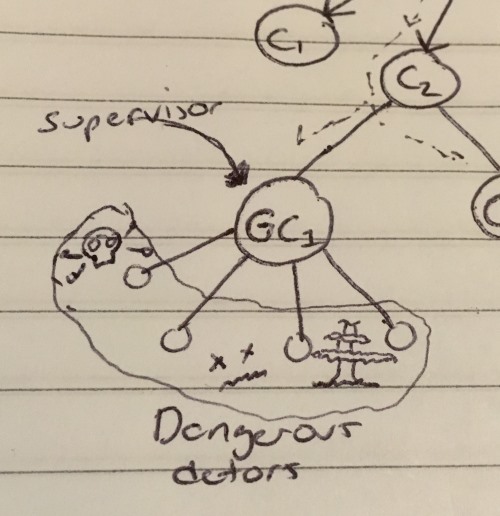 C1
C2
supervisor
GC1
Dangerous
actors